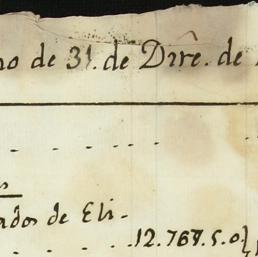 no de 31. de Dire. de
ados de Eli-
12.767.5.0